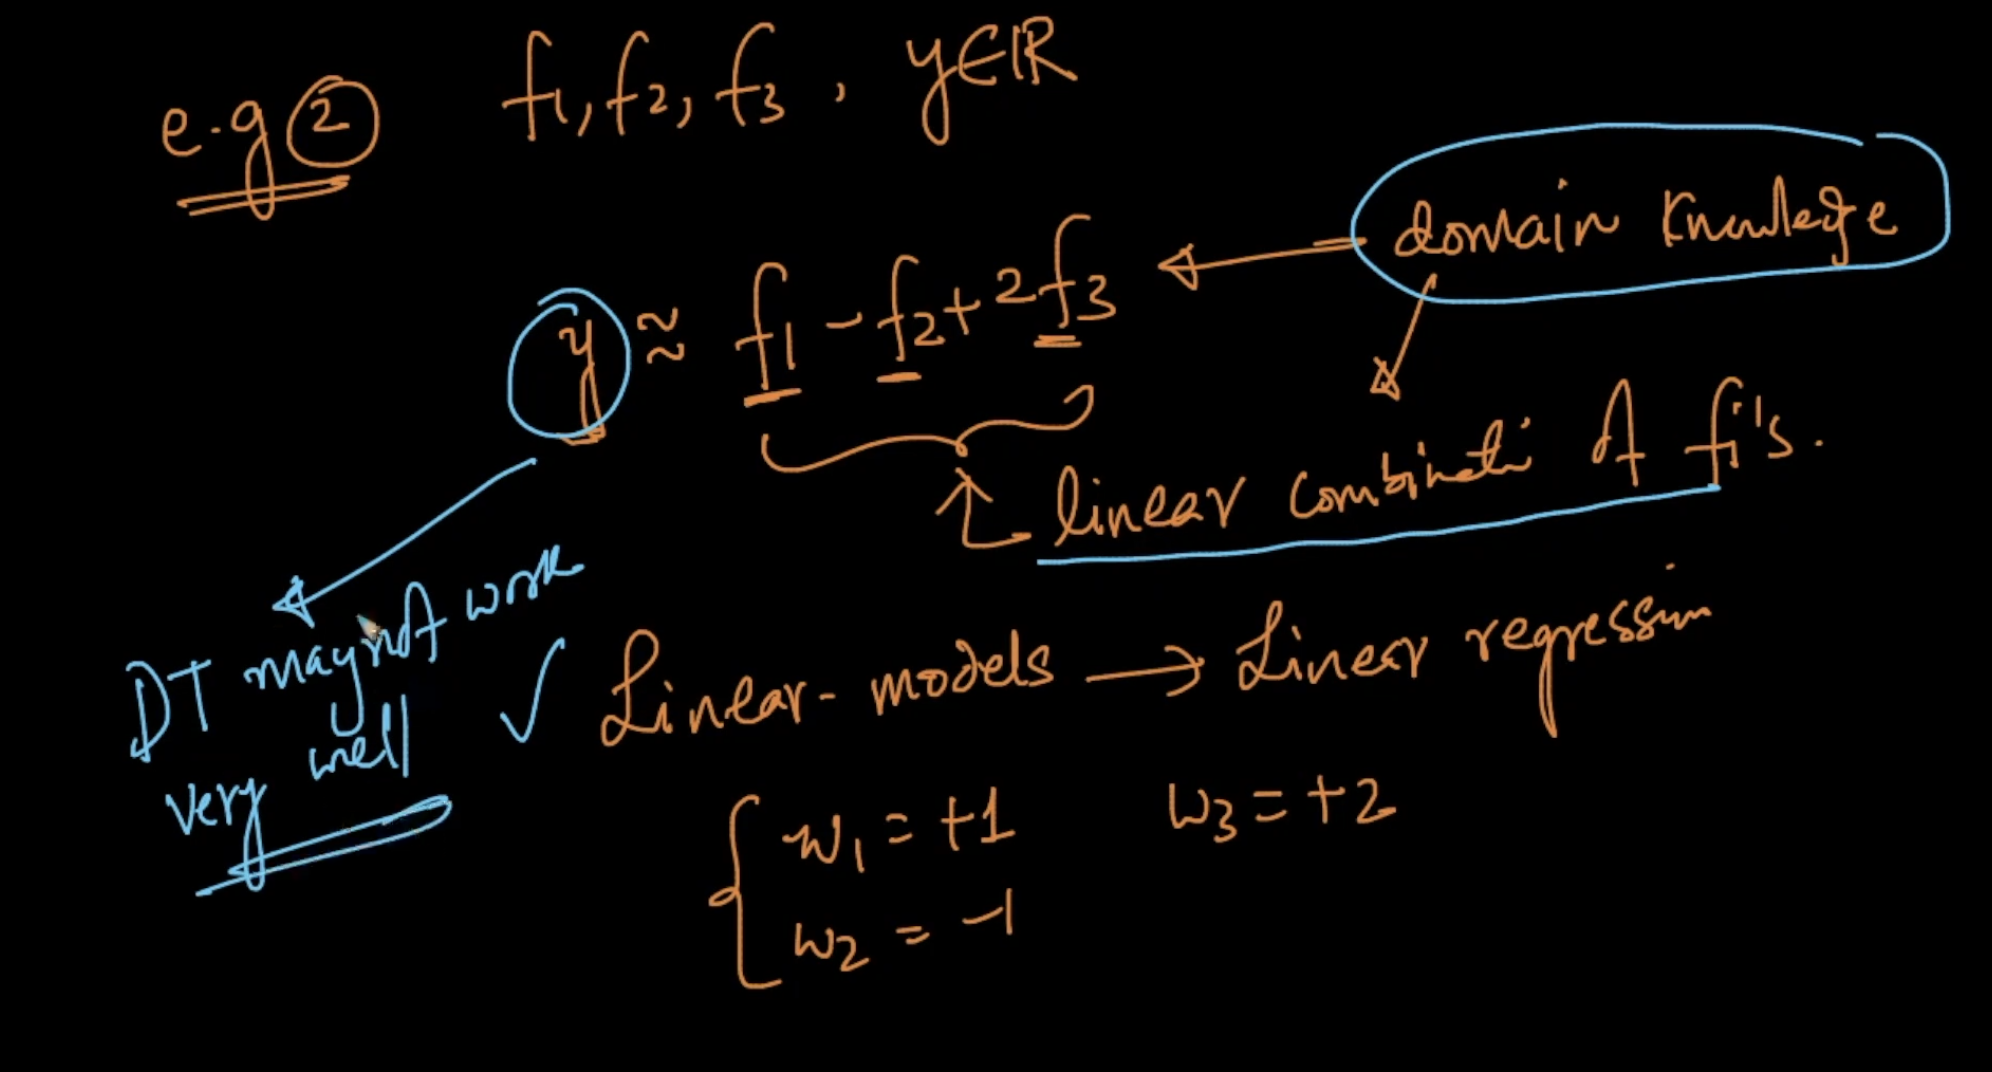 e.g 2 f1, f2, f3, y∈ℝ
domain knowledge
y ≈ f1 - f2 + 2f3
linear combinati of fi's.
DT may not work
very well
✓ Linear-models → Linear regression
w1 = +1 w3 = +2
w2 = -1